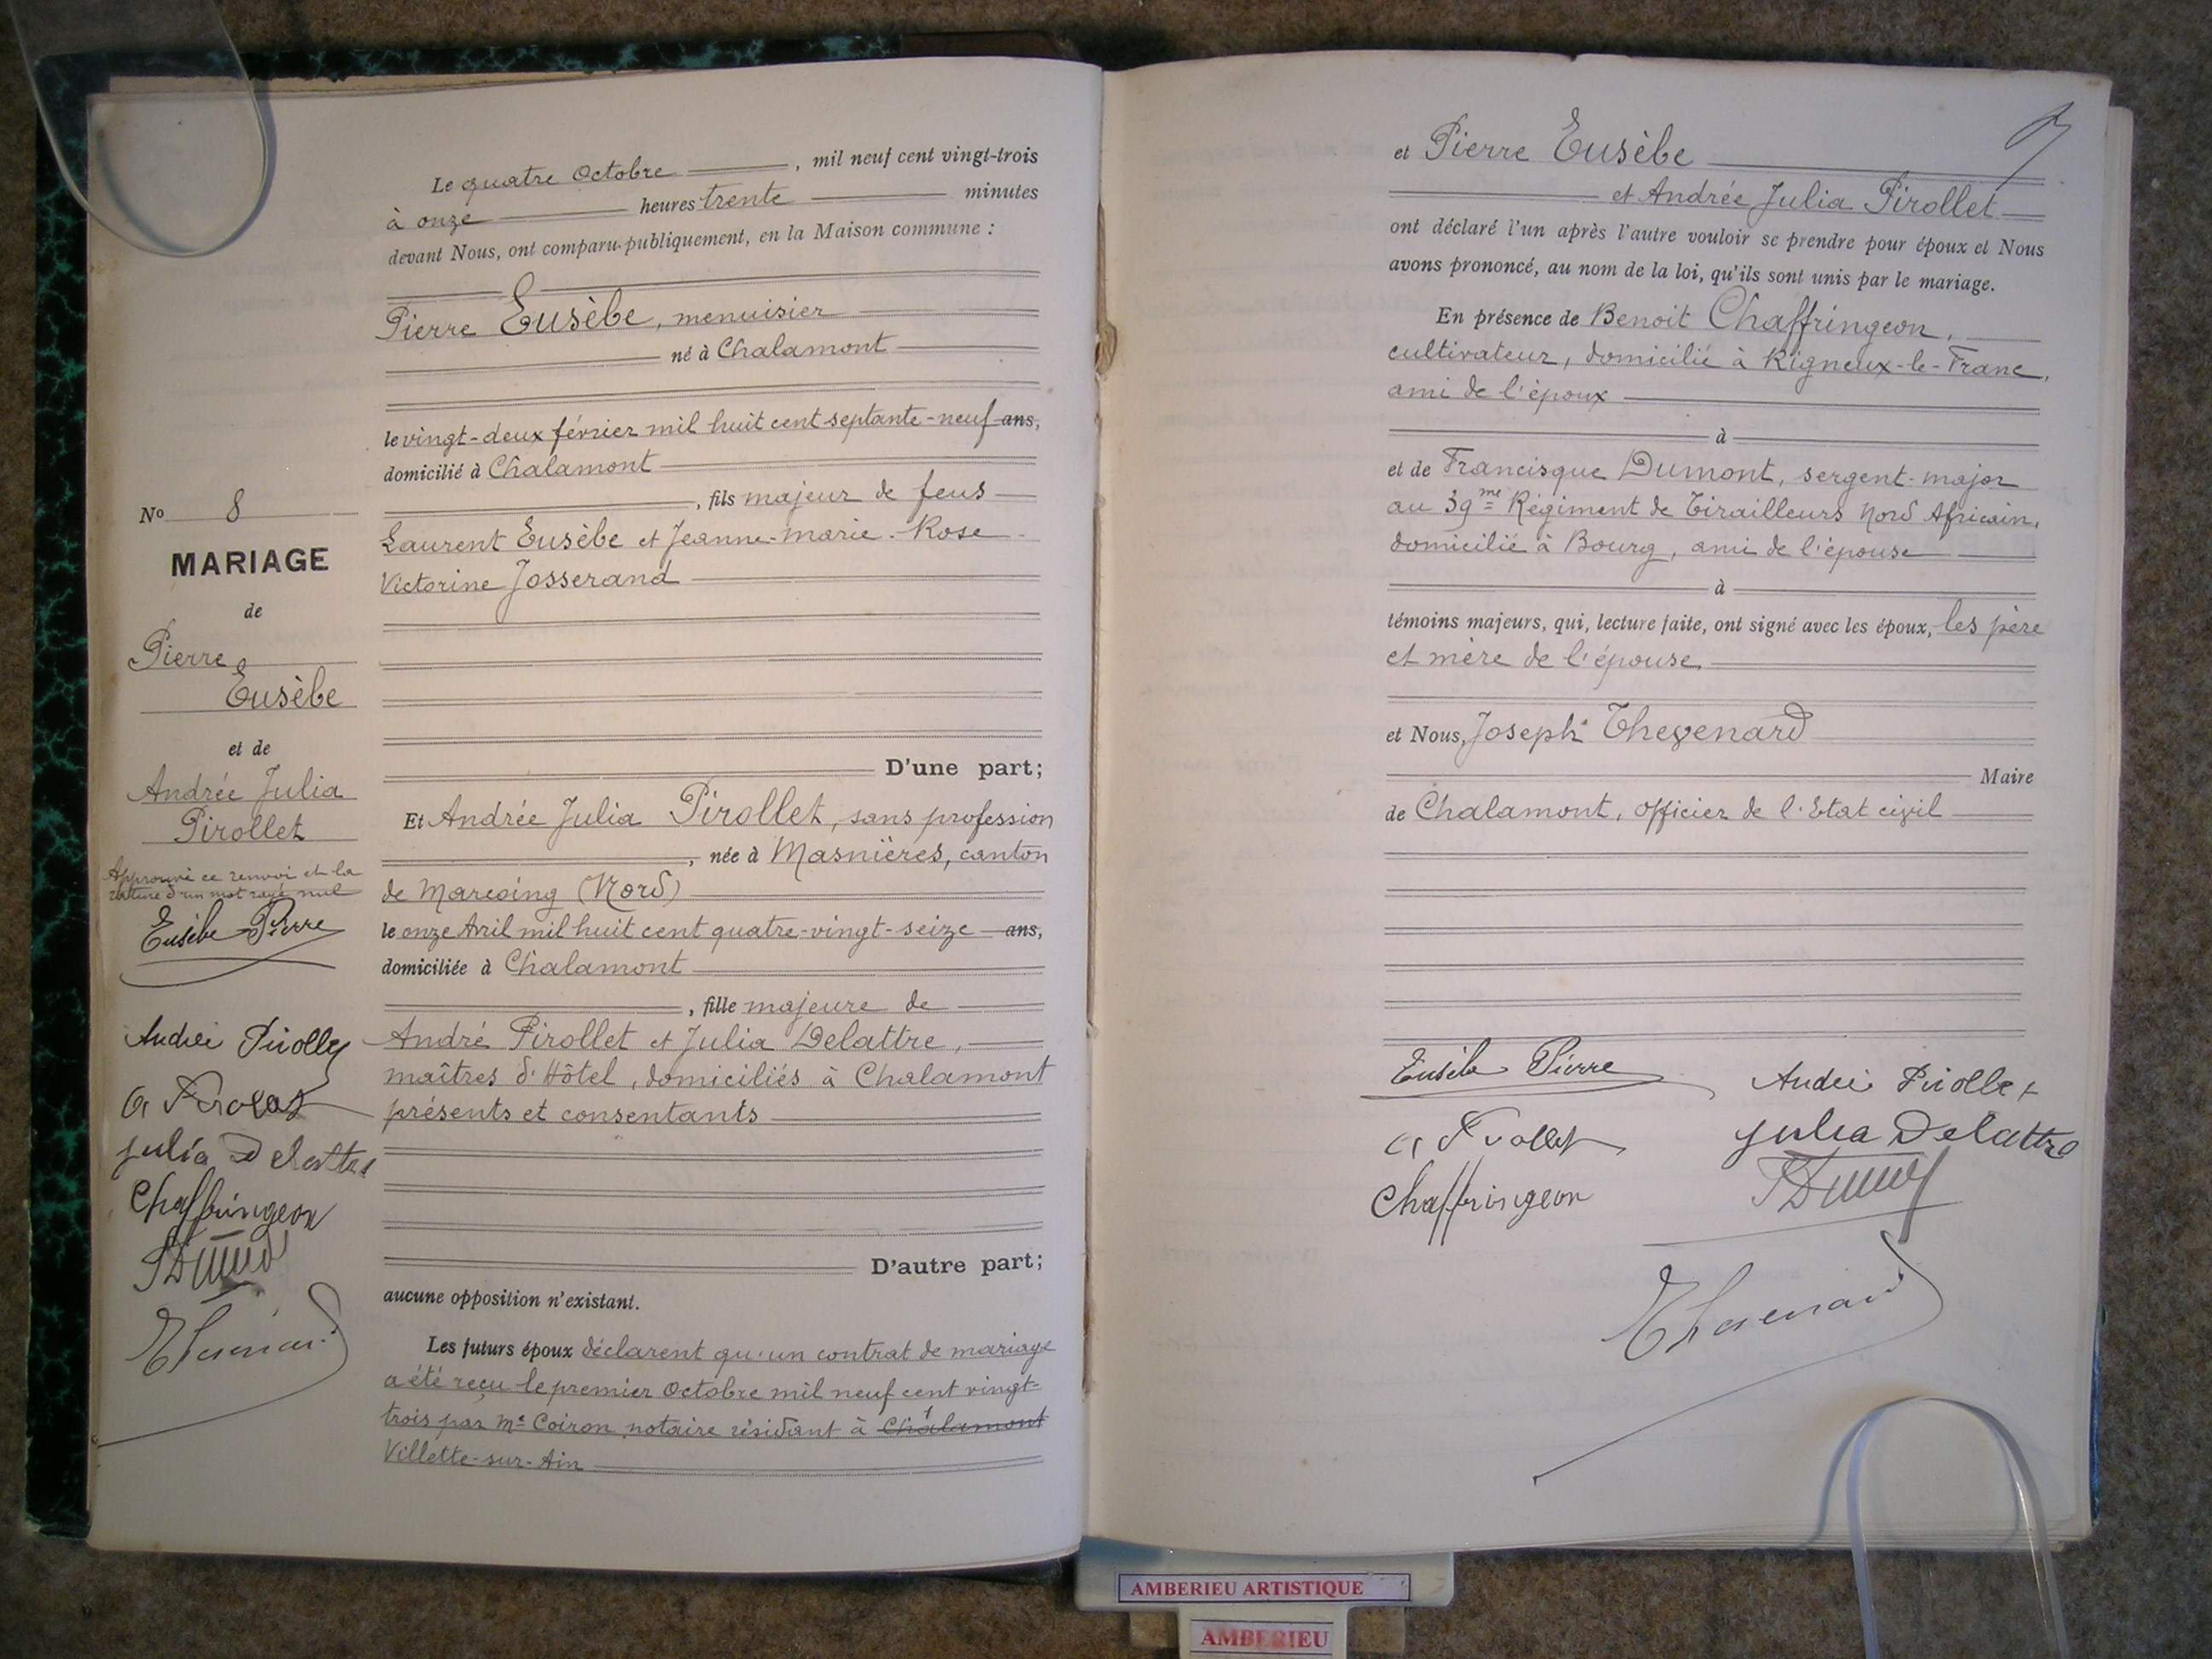 N° 8
MARIAGE
de
Pierre
Eusèbe
et de
Andrée Julia
Pirollet
Approuvé ce renvoi et la
rature d'un mot rayé nul
Eusèbe Pierre
Andrée Pirollet
A Pirollet
Julia Delattre
Chaffringeon
Thevenard
Le quatre Octobre, mil neuf cent vingt-trois
à onze heures trente minutes
devant Nous, ont comparu publiquement, en la Maison commune :
Pierre Eusèbe, menuisier
né à Chalamont
le vingt-deux février mil huit cent septante-neuf ans,
domicilié à Chalamont
, fils majeur de feus
Laurent Eusèbe et Jeanne-Marie-Rose
Victorine Josserand
D'une part;
Et Andrée Julia Pirollet, sans profession
, née à Masnières, canton
de Marcoing (Nord)
le onze Avril mil huit cent quatre-vingt-seize ans,
domiciliée à Chalamont
, fille majeure de
André Pirollet et Julia Delattre,
maîtres d'Hôtel, domiciliés à Chalamont
présents et consentants
D'autre part;
aucune opposition n'existant.
Les futurs époux déclarent qu'un contrat de mariage
a été reçu le premier Octobre mil neuf cent vingt-
trois par Me Coiron notaire résidant à Chalamont
Villette-sur-Ain
et Pierre Eusèbe
et Andrée Julia Pirollet
ont déclaré l'un après l'autre vouloir se prendre pour époux et Nous
avons prononcé, au nom de la loi, qu'ils sont unis par le mariage.
En présence de Benoit Chaffringeon,
cultivateur, domicilié à Rigneux-le-Franc,
ami de l'époux
à
et de Francisque Dumont, sergent-major
au 39me Régiment de Tirailleurs Nord Africain,
domicilié à Bourg, ami de l'épouse
à
témoins majeurs, qui, lecture faite, ont signé avec les époux, les père
et mère de l'épouse,
et Nous, Joseph Thevenard
Maire
de Chalamont, officier de l'Etat civil
Eusèbe Pierre
Andrée Pirollet
A Pirollet
Julia Delattre
Chaffringeon
Thevenard
AMBERIEU ARTISTIQUE
AMBERIEU